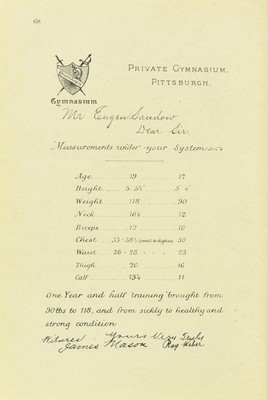 68
PRIVATE GYMNASIUM,
PITTSBURGH.
Gymnasium
Mr Eugen Sandow
Dear Sir.
Measurements under your System
Age 19 17
Height 5' 5½" 5' 4"
Weight 118 90
Neck 16½ 12
Biceps 12 10
Chest 33-38½ 30
Waist 26-28 23
Thigh 20 16
Calf 13¼ 11
One Year and half training brought from
90lbs to 118, and from sickly to healthy and
strong condition
Yours Very Truly
Witness James Mason Roy